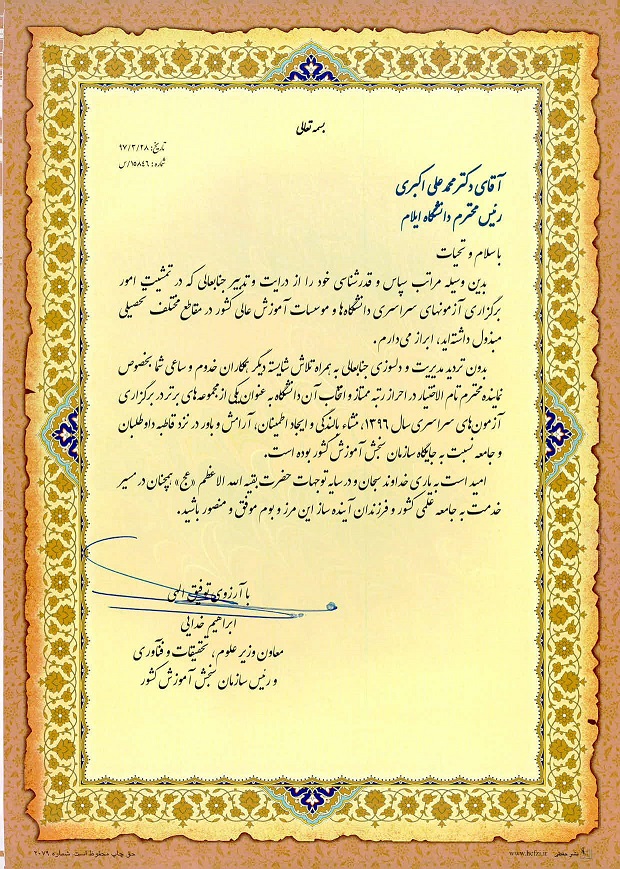 بسمه تعالی
تاریخ: ۹۷/۳/۲۸
شماره: ۱۵۸۴۶/س
آقای دکتر محمدعلی اکبری
رئیس محترم دانشگاه ایلام
با سلام و تحیات
بدین وسیله مراتب سپاس و قدرشناسی خود را از درایت و تدبیر جنابعالی که در تمشیت امور
برگزاری آزمونهای سراسری دانشگاه‌ها و موسسات آموزش عالی کشور در مقاطع مختلف تحصیلی
مبذول داشته‌اید، ابراز می‌دارم.
بدون تردید مدیریت و دلسوزی جنابعالی به همراه تلاش شایسته دیگر همکاران خدوم و ساعی شما بخصوص
نماینده محترم تام الاختیار در احراز رتبه ممتاز و انتخاب آن دانشگاه به عنوان یکی از مجموعه‌های برتر در برگزاری
آزمون‌های سراسری سال ۱۳۹۶، منشاء بالندگی و ایجاد اطمینان، آرامش و باور در نزد قاطبه داوطلبان
و جامعه نسبت به جایگاه سازمان سنجش آموزش کشور بوده است.
امید است به یاری خداوند سبحان و در سایه توجهات حضرت بقیه الله الاعظم «عج» همچنان در مسیر
خدمت به جامعه علمی کشور و فرزندان آینده ساز این مرز و بوم موفق و منصور باشید.
با آرزوی توفیق الهی
ابراهیم خدایی
معاون وزیر علوم، تحقیقات و فناوری
و رئیس سازمان سنجش آموزش کشور
حق چاپ محفوظ است. شماره ۲۰۷۹
www.hefzi.ir نشر حفظی